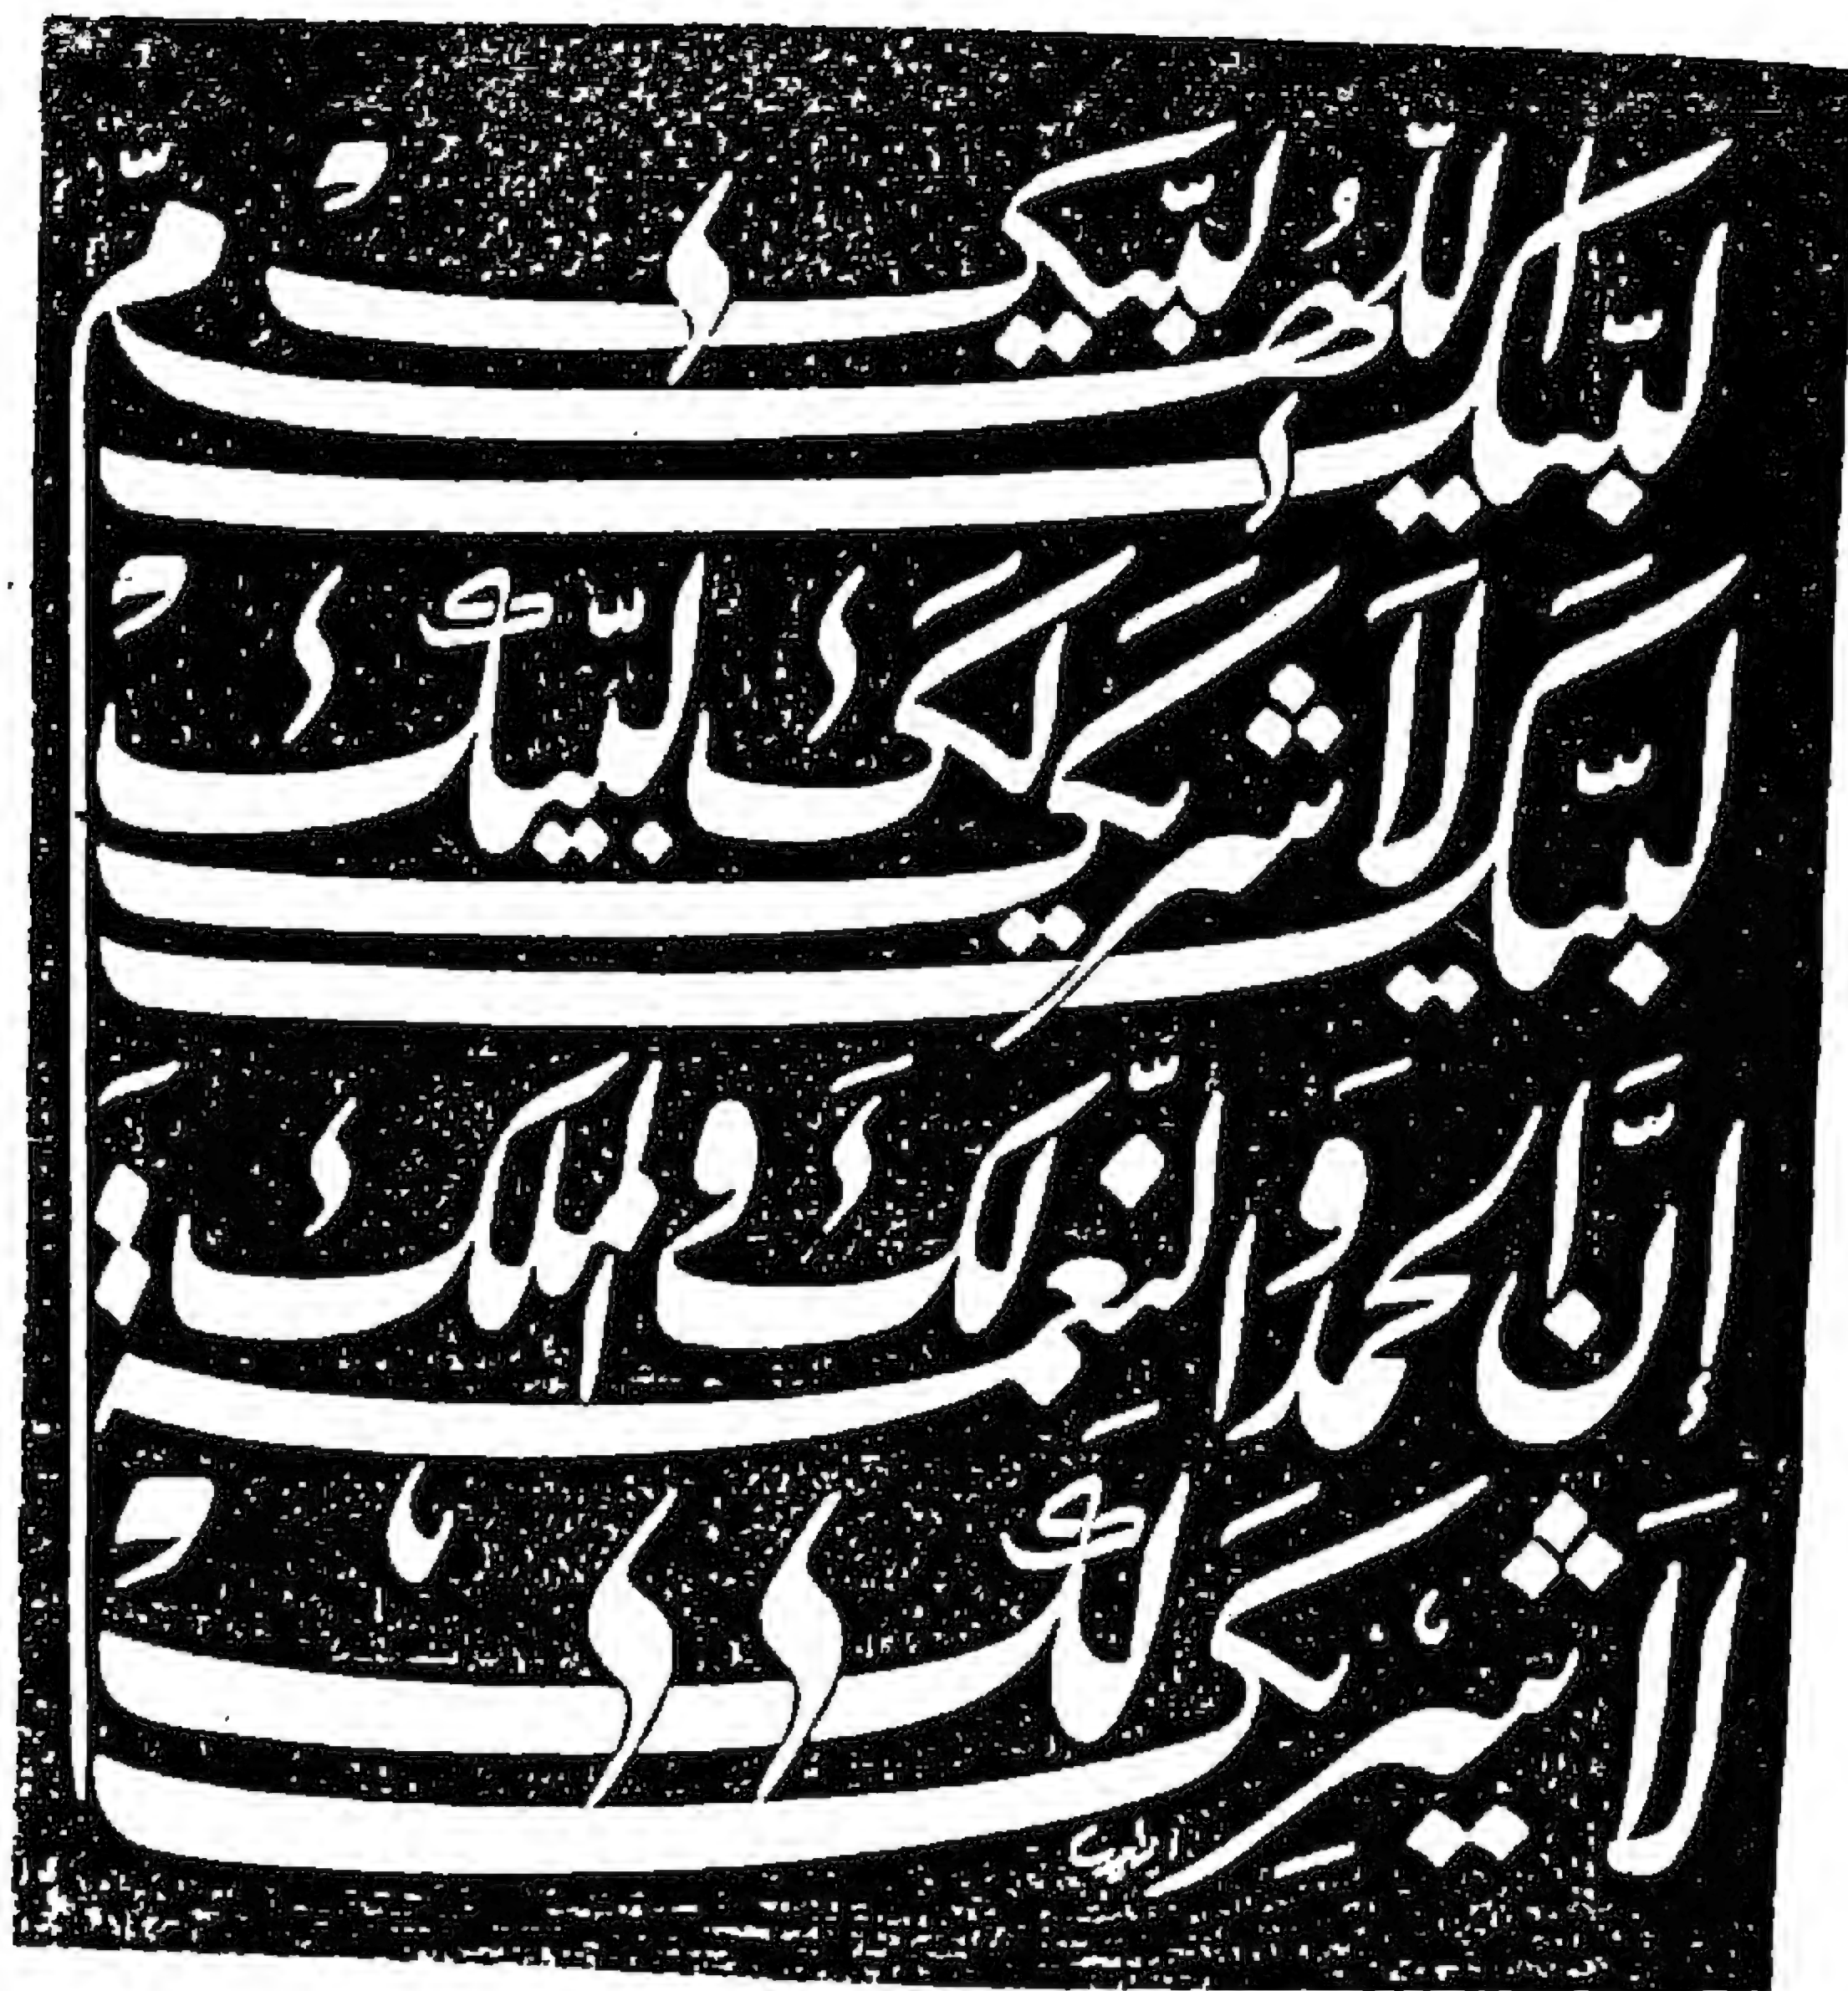 لبّيك اللّٰهُمّ لبّيك
لبّيك لَا شريكَ لكَ لبّيك
إنَّ الحمدَ وَالنّعمة لكَ وَالملك
لَا شرِيكَ لكَ